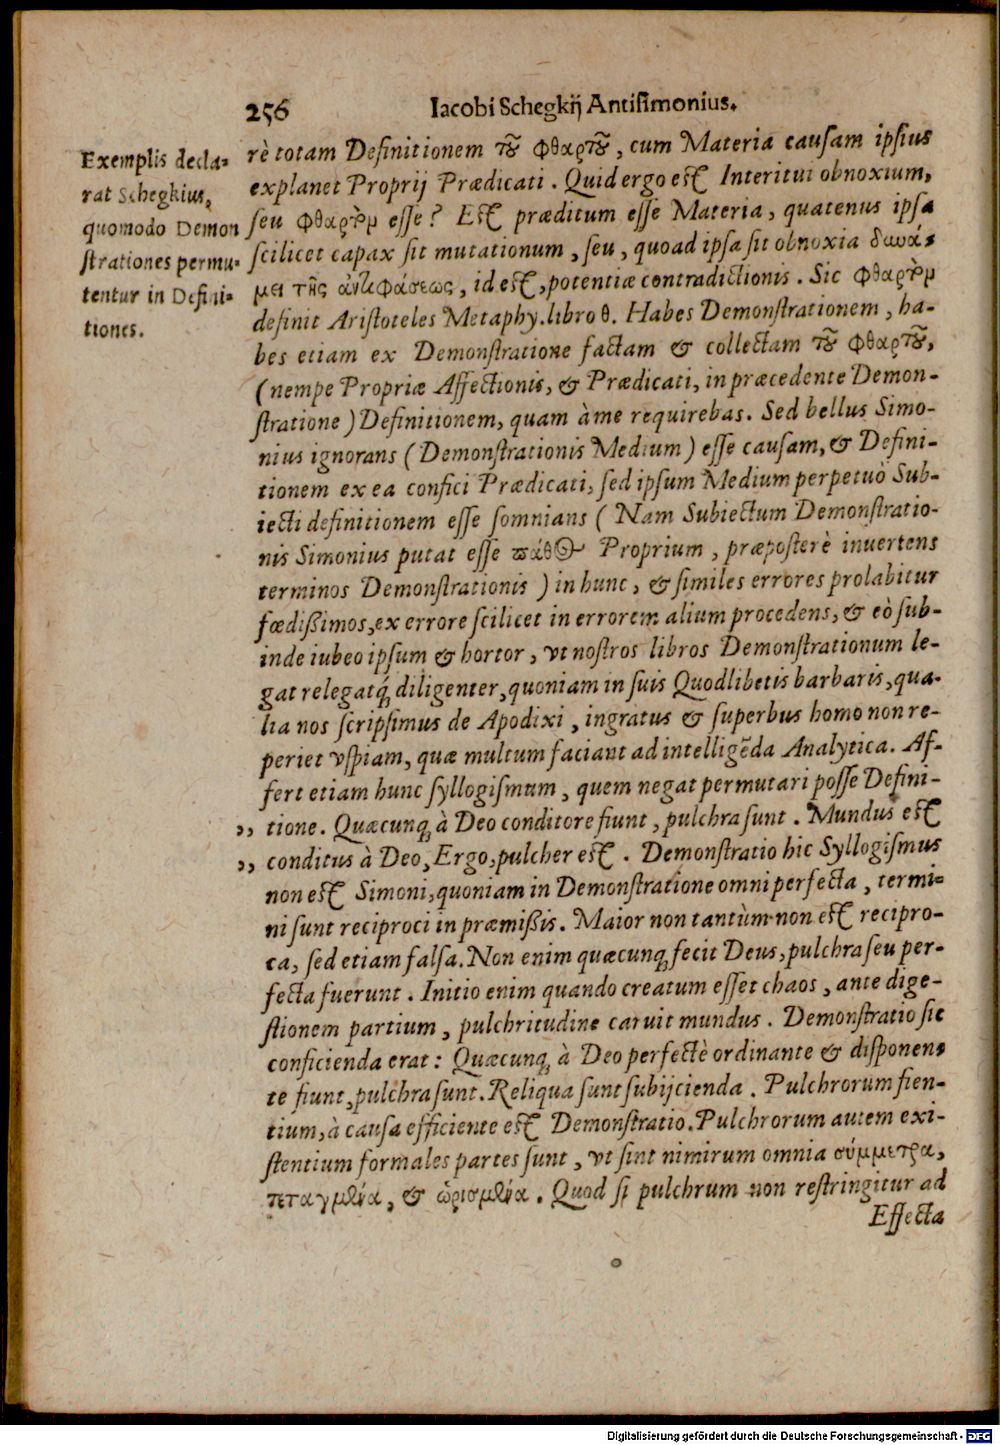 256 Iacobi Schegkij Antisimonius.
Exemplis decla-
rat Schegkius,
quomodo Demon
strationes permu-
tentur in Defini-
tiones.
rè totam Definitionem τοῦ φθαρτοῦ, cum Materia causam ipsius
explanet Proprij Prædicati. Quid ergo est Interitui obnoxium,
seu φθαρτὸν esse? Est præditum esse Materia, quatenus ipsa
scilicet capax sit mutationum, seu, quoad ipsa sit obnoxia δυνά-
μει τῆς ἀντιφάσεως, id est, potentiæ contradictionis. Sic φθαρτὸν
definit Aristoteles Metaphy. libro θ. Habes Demonstrationem, ha-
bes etiam ex Demonstratione factam & collectam τοῦ φθαρτοῦ,
(nempe Propriæ Affectionis, & Prædicati, in præcedente Demon-
stratione) Definitionem, quam à me requirebas. Sed bellus Simo-
nius ignorans (Demonstrationis Medium) esse causam, & Defini-
tionem ex ea confici Prædicati, sed ipsum Medium perpetuò Sub-
iecti definitionem esse somnians (Nam Subiectum Demonstratio-
nis Simonius putat esse πάθος Proprium, præposterè inuertens
terminos Demonstrationis) in hunc, & similes errores prolabitur
fœdißimos, ex errore scilicet in errorem alium procedens, & eò sub-
inde iubeo ipsum & hortor, vt nostros libros Demonstrationum le-
gat relegatq́; diligenter, quoniam in suis Quodlibetis barbaris, qua-
lia nos scripsimus de Apodixi, ingratus & superbus homo non re-
periet vspiam, quæ multum faciant ad intelligẽda Analytica. Af-
fert etiam hunc syllogismum, quem negat permutari posse Defini-
,, tione. Quæcunq; à Deo conditore fiunt, pulchra sunt. Mundus est
,, conditus à Deo, Ergo, pulcher est. Demonstratio hic Syllogismus
non est Simoni, quoniam in Demonstratione omni perfecta, termi-
ni sunt reciproci in præmißis. Maior non tantùm non est recipro-
ca, sed etiam falsa. Non enim quæcunq; fecit Deus, pulchra seu per-
fecta fuerunt. Initio enim quando creatum esset chaos, ante dige-
stionem partium, pulchritudine caruit mundus. Demonstratio sic
conficienda erat: Quæcunq; à Deo perfectè ordinante & disponen-
te fiunt, pulchra sunt. Reliqua sunt subijcienda. Pulchrorum fien-
tium, à causa efficiente est Demonstratio. Pulchrorum autem exi-
stentium formales partes sunt, vt sint nimirum omnia σύμμετρα,
τεταγμένα, & ὡρισμένα. Quod si pulchrum non restringitur ad
Effecta
Digitalisierung gefördert durch die Deutsche Forschungsgemeinschaft - DFG